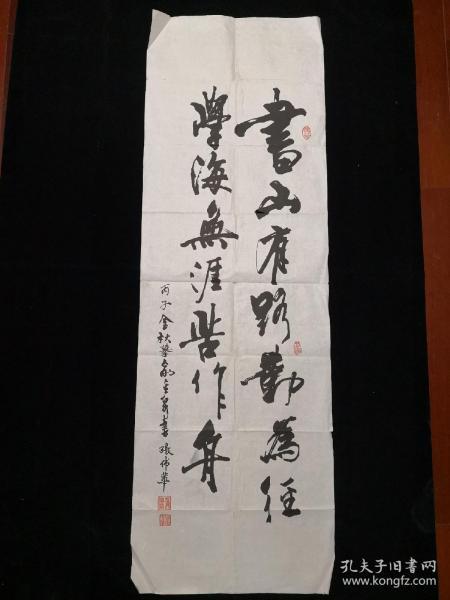 書山有路勤為徑
學海無涯苦作舟
丙子金秋
書 張偉華
孔夫子旧书网
www.kongfz.com